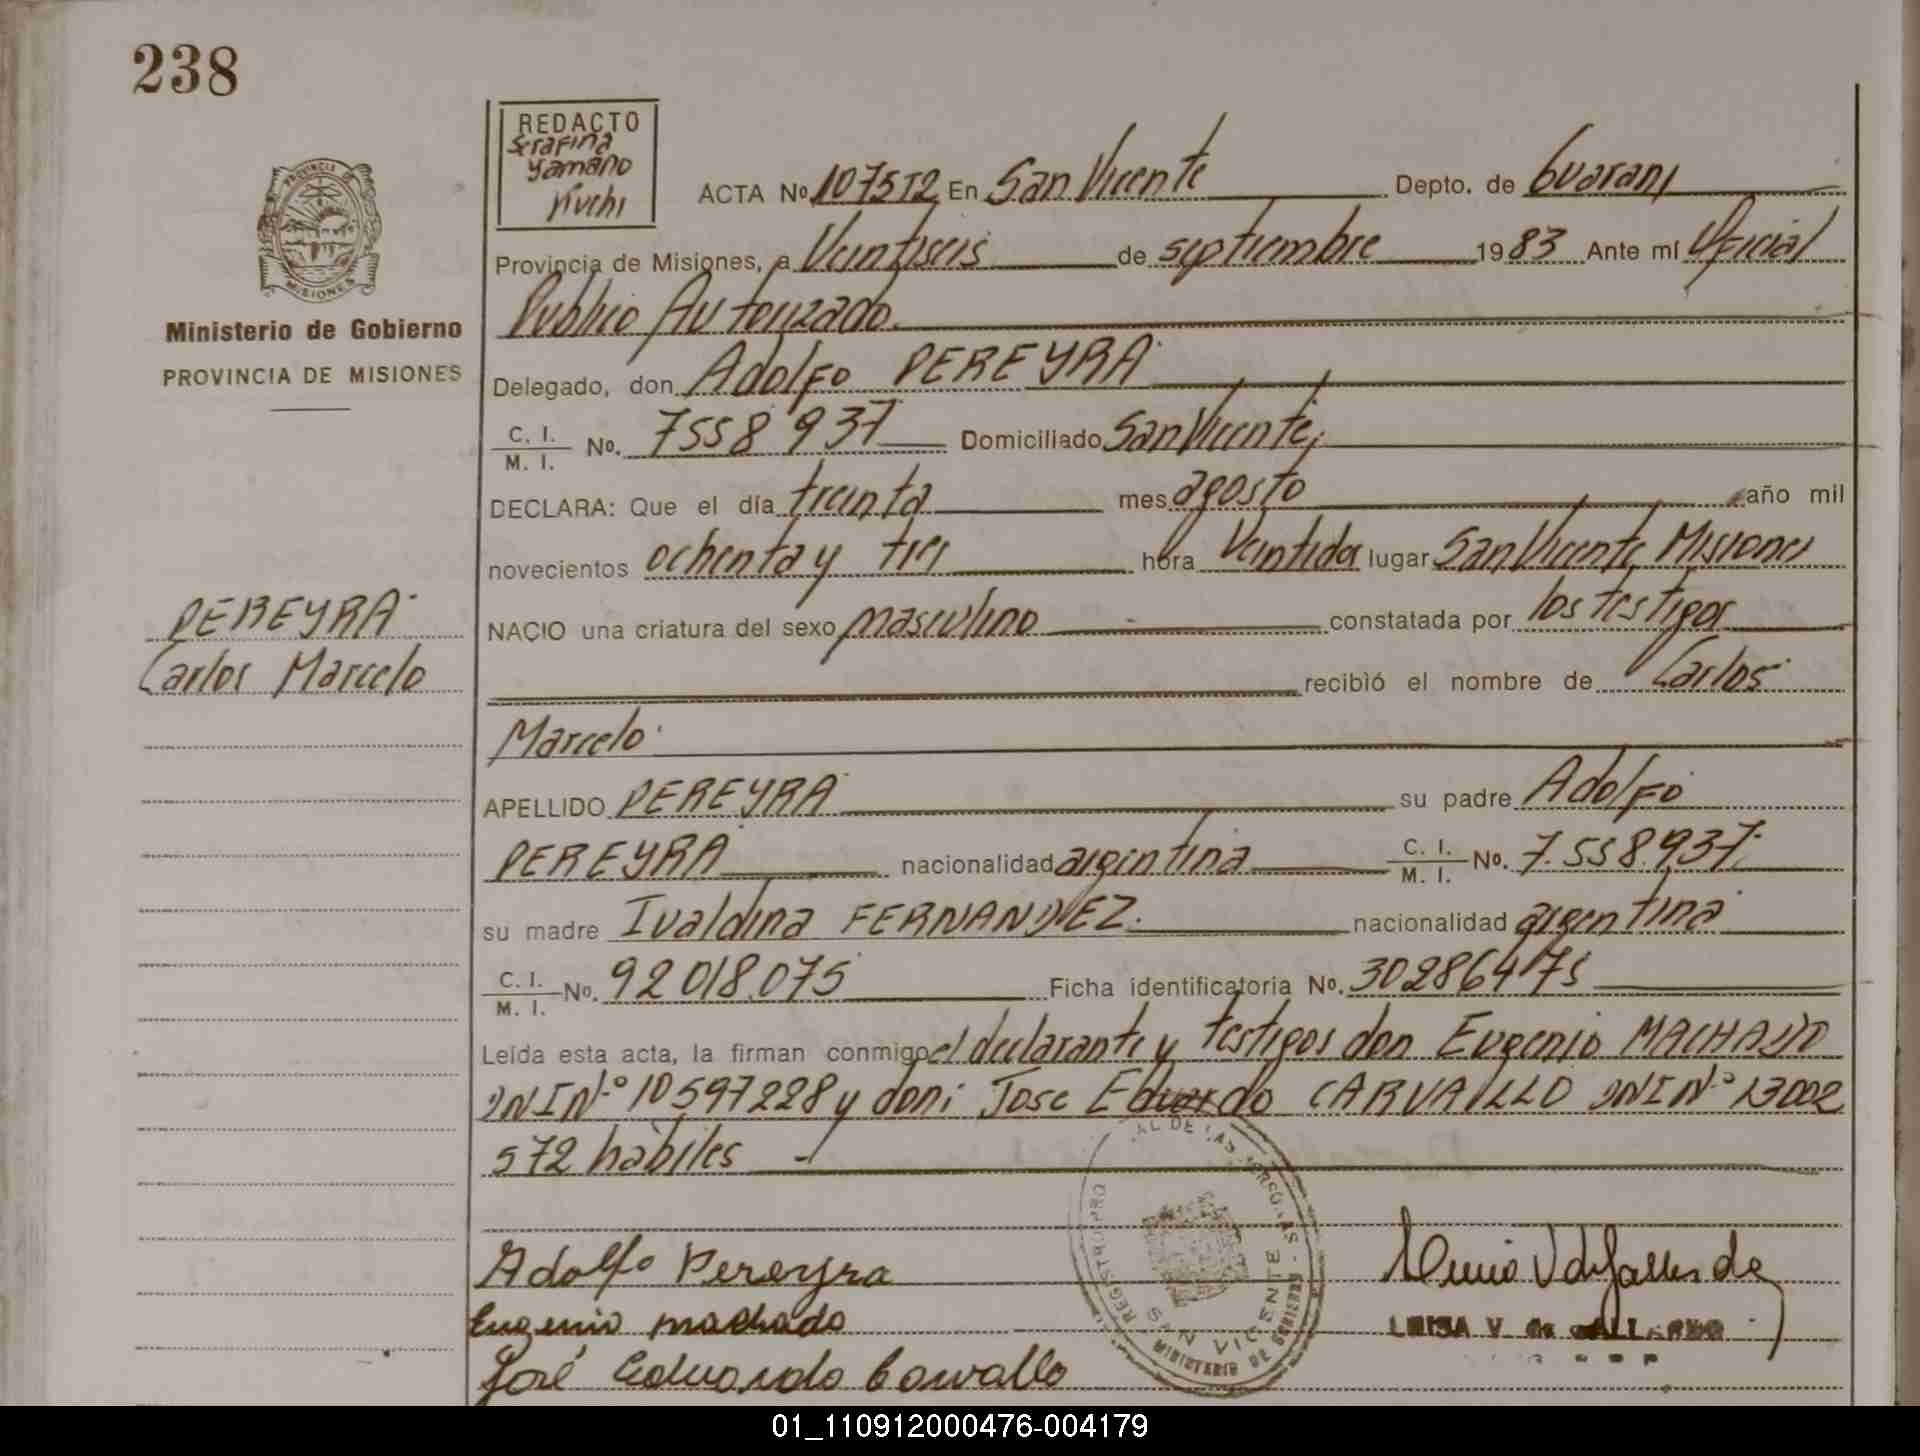 238
REDACTO
Serafina
Yamaño
Kuchi
PROVINCIA DE
MISIONES
Ministerio de Gobierno
PROVINCIA DE MISIONES
PEREYRA
Carlos Marcelo
ACTA Nº 107512 En San Vicente Depto. de Guarani
Provincia de Misiones, a Veintiseis de septiembre 1983 Ante mí Oficial
Publico Autorizado.
Delegado, don Adolfo PEREYRA
C. I. / M. I. No. 7558937 Domiciliado San Vicente,
DECLARA: Que el día treinta mes agosto año mil
novecientos ochenta y tres hora Veintidos lugar San Vicente, Misiones
NACIO una criatura del sexo masculino constatada por los testigos
recibió el nombre de Carlos
Marcelo
APELLIDO PEREYRA su padre Adolfo
PEREYRA nacionalidad argentina C. I. / M. I. No. 7.558.937
su madre Ivaldina FERNANDEZ. nacionalidad argentina
C. I. / M. I. No. 92.018.075 Ficha identificatoria No. 30286475
Leída esta acta, la firman conmigo el declarante y testigos don Eugenio MACHADO
DNI Nº 10597228 y don: Jose Eduardo CARVALLO DNI Nº 13002
572 hàbiles
Adolfo Pereyra
Eugenio machado
José Eduardo Carvallo
REGISTRO PRO AL DE LAS PERSONAS
SAN VICENTE
MINISTERIO DE GOBIERNO
LUISA V. de GALLARDO
01_110912000476-004179